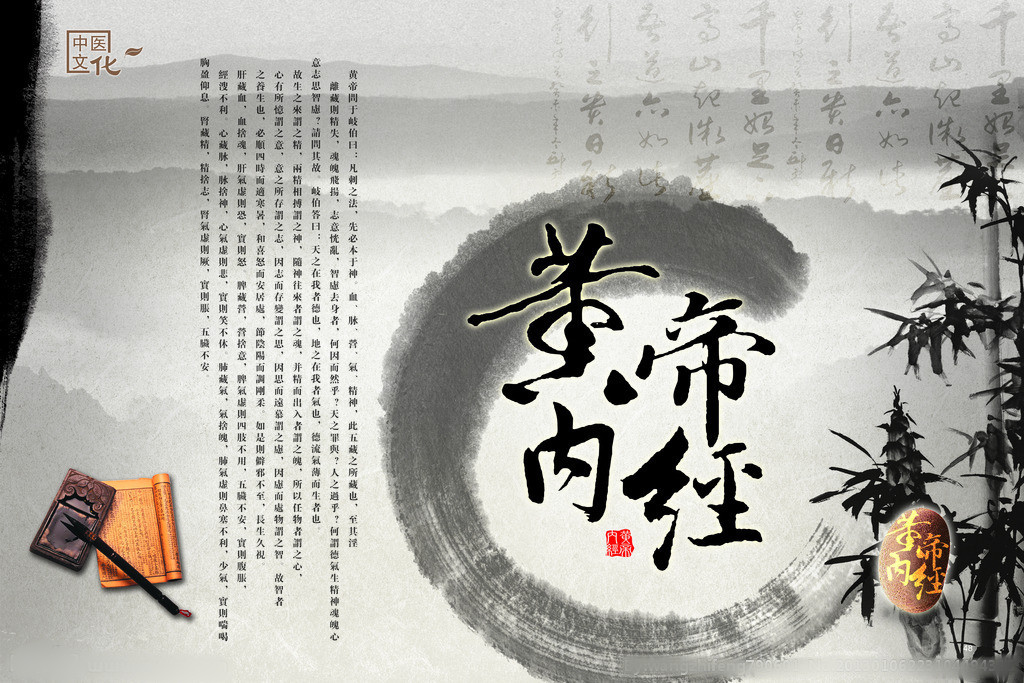 中医
文化
黄帝問于岐伯曰:凡刺之法,先必本于神。血、脉、營、氣、精神,此五藏之所藏也,至其淫
離藏則精失,魂魄飛揚,志意恍亂,智慮去身者,何因而然乎?天之罪與?人之過乎?何謂德氣生精神魂魄心
意志思智慮?請問其故。岐伯答曰:天之在我者德也,地之在我者氣也,德流氣薄而生者也。
故生之來謂之精,兩精相搏謂之神,隨神往來者謂之魂,并精而出入者謂之魄,所以任物者謂之心,
心有所憶謂之意,意之所存謂之志,因志而存變謂之思,因思而遠慕謂之慮,因慮而處物謂之智 故智者
之養生也,必順四時而適寒暑,和喜怒而安居處,節陰陽而調剛柔 如是則僻邪不至,長生久視
肝藏血,血捨魂,肝氣虛則恐,實則怒 脾藏營,營捨意,脾氣虛則四肢不用,五臟不安,實則腹脹,
經溲不利。心藏脉,脉捨神,心氣虛則悲,實則笑不休 肺藏氣,氣捨魄,肺氣虛則鼻塞不利,少氣,實則喘喝
胸盈仰息 腎藏精,精捨志,腎氣虛則厥,實則脹,五臟不安
千里始足
高山起微
吾道亦如此
行之貴日新
黄帝
内經
黄帝
内經
黄帝
内經
48